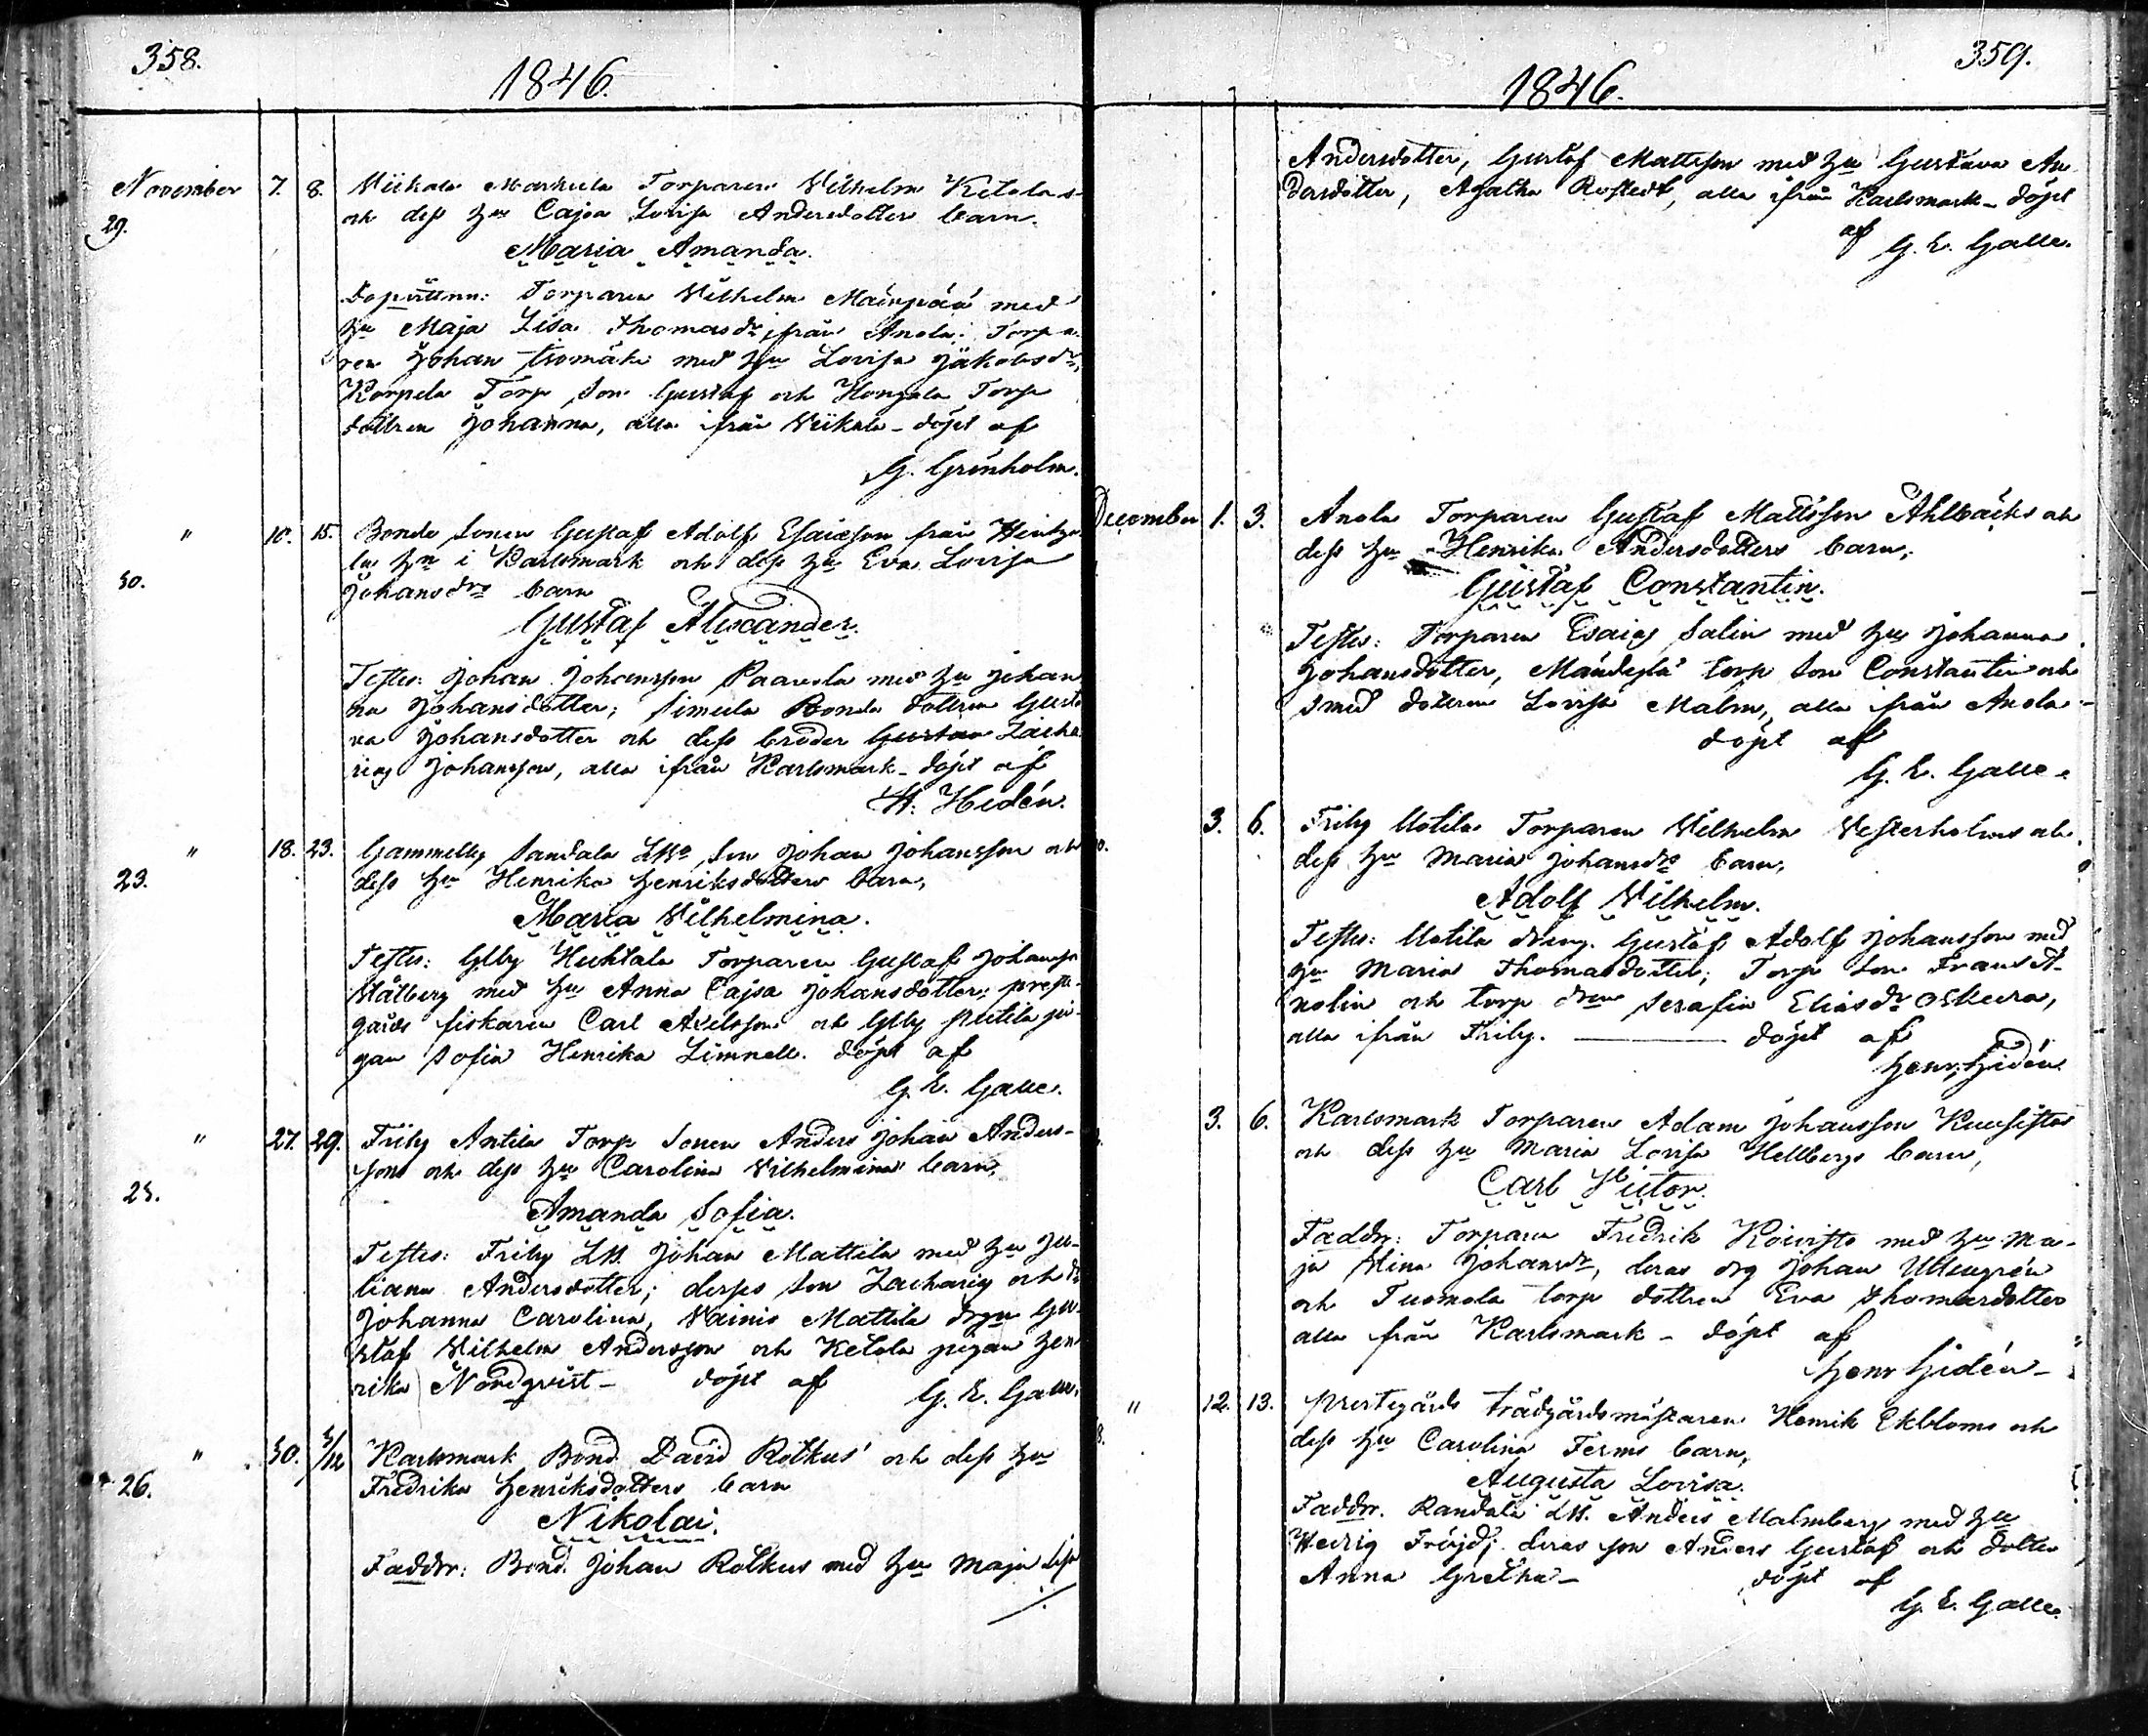 358.
1846.
November 7. 8. Wiikala Markula Torparen Wilhelm Ketolas
29. och dess hu Cajsa Lovisa Andersdotters barn.
Maria Amanda.
Dopvittnen: Torparen Wilhelm Mäenpää med
hu Maja Lisa Thomasdr ifrån Anola; Torpa-
ren Johan Isomäki med hu Lovisa Jakobsdr,
Korpela Torp son Gustaf och Hongela Torp
dottren Johanna, alla ifrån Wiikala - döpt af
G. Grönholm.
" 10. 15. Bonde sonen Gustaf Adolf Esaiæson från
30. hn i Karlsmark och dess hu Eva Lovisa
Johansdrs barn
Gustaf Alexander.
Testes: Johan Johansson Paavola med hu Johan
na Johansdotter; Simula Bonde dottren Gusta
va Johansdotter och dess broder Gustav Zacha
rias Johansson, alla ifrån Karlsmark - döpt af
H. Hidén.
" 18. 23. Gammelby Sandala son Johan Johansson och
23. dess hu Henrika Henriksdotters barn,
Maria Wilhelmina.
Testes: Glby Huhtala Torparen Gustaf Johansson
Stålberg med hu Anna Cajsa Johansdotter; prest-
gårds fiskaren Carl Axelsson och Glby pi-
gan Sofia Henrika Limnell. döpt af
G. E. Galle.
" 27. 29. Friby Antila Torp sonen Anders Johan Anders-
25. sons och dess hu Carolina Wilhelminas barn,
Amanda Sofia.
Testes: Friby Johan Mattila med hu Ju-
liana Andersdotter; derjes son Zacharias och dr
Johanna Carolina, Wainio Mattila drgn Gu-
staf Wilhelm Andersson och Ketola pigan Hen
rika Nordqvist - döpt af G. E. Galle.
" 30. 3/12 Karlsmark Bond. David Rotkus' och dess hu
26. Fredrika Henriksdotters barn
Nikolai.
Faddr: Bond. Johan Rotkus med hu Maja Lisa
./.
359.
1846.
Andersdotter, Gustaf Mattsson med hu Gustava An
dersdotter, Agatha Rostedt, alla ifrån Karlsmark - döpt
af G. E. Galle.
December 1. 3. Anola Torparen Gustaf Mattsson Ahlbäcks och
dess hu Henrika Andersdotters barn,
Gustaf Constantin.
Testes: Torparen Esaias Salin med hu Johanna
Johansdotter, torp son Constantin och
smed dottren Lovisa Malm, alla ifrån Anola -
döpt af
G. E. Galle.
3. 6. Friby Uotila Torparen Wilhelm Westerholms och
dess hu Maria Johansdrs barn,
Adolf Wilhelm.
Testes: Uotila dreng. Gustaf Adolf Johansson med
hu Maria Thomasdotter; Torp son Frans A-
nolin och torp drn Serafia Eliasdr
alla ifrån Friby. döpt af
Henr. Hidén
3. 6. Karlsmark Torparen Adam Johansson Kuusistos
och dess hu Maria Lovisa Hellbergs barn,
Carl Victor.
Faddr: Torparen Fredrik Koivisto med hu Ma-
ja Stina Johansdr, deras drg Johan
och Tuomola torp dottren Eva Thomasdotter
alla från Karlsmark - döpt af
Henr Hidén -
" 12. 13. Prestegårds trädgårdsmästaren Henrik Ekbloms och
dess hu Carolina Ferms barn,
Augusta Lovisa.
Faddr. Randala Anders Malmberg med hu
Hedvig Fröjd; deras son Anders Gustaf och dotter
Anna Gretha - döpt af
G. E. Galle.